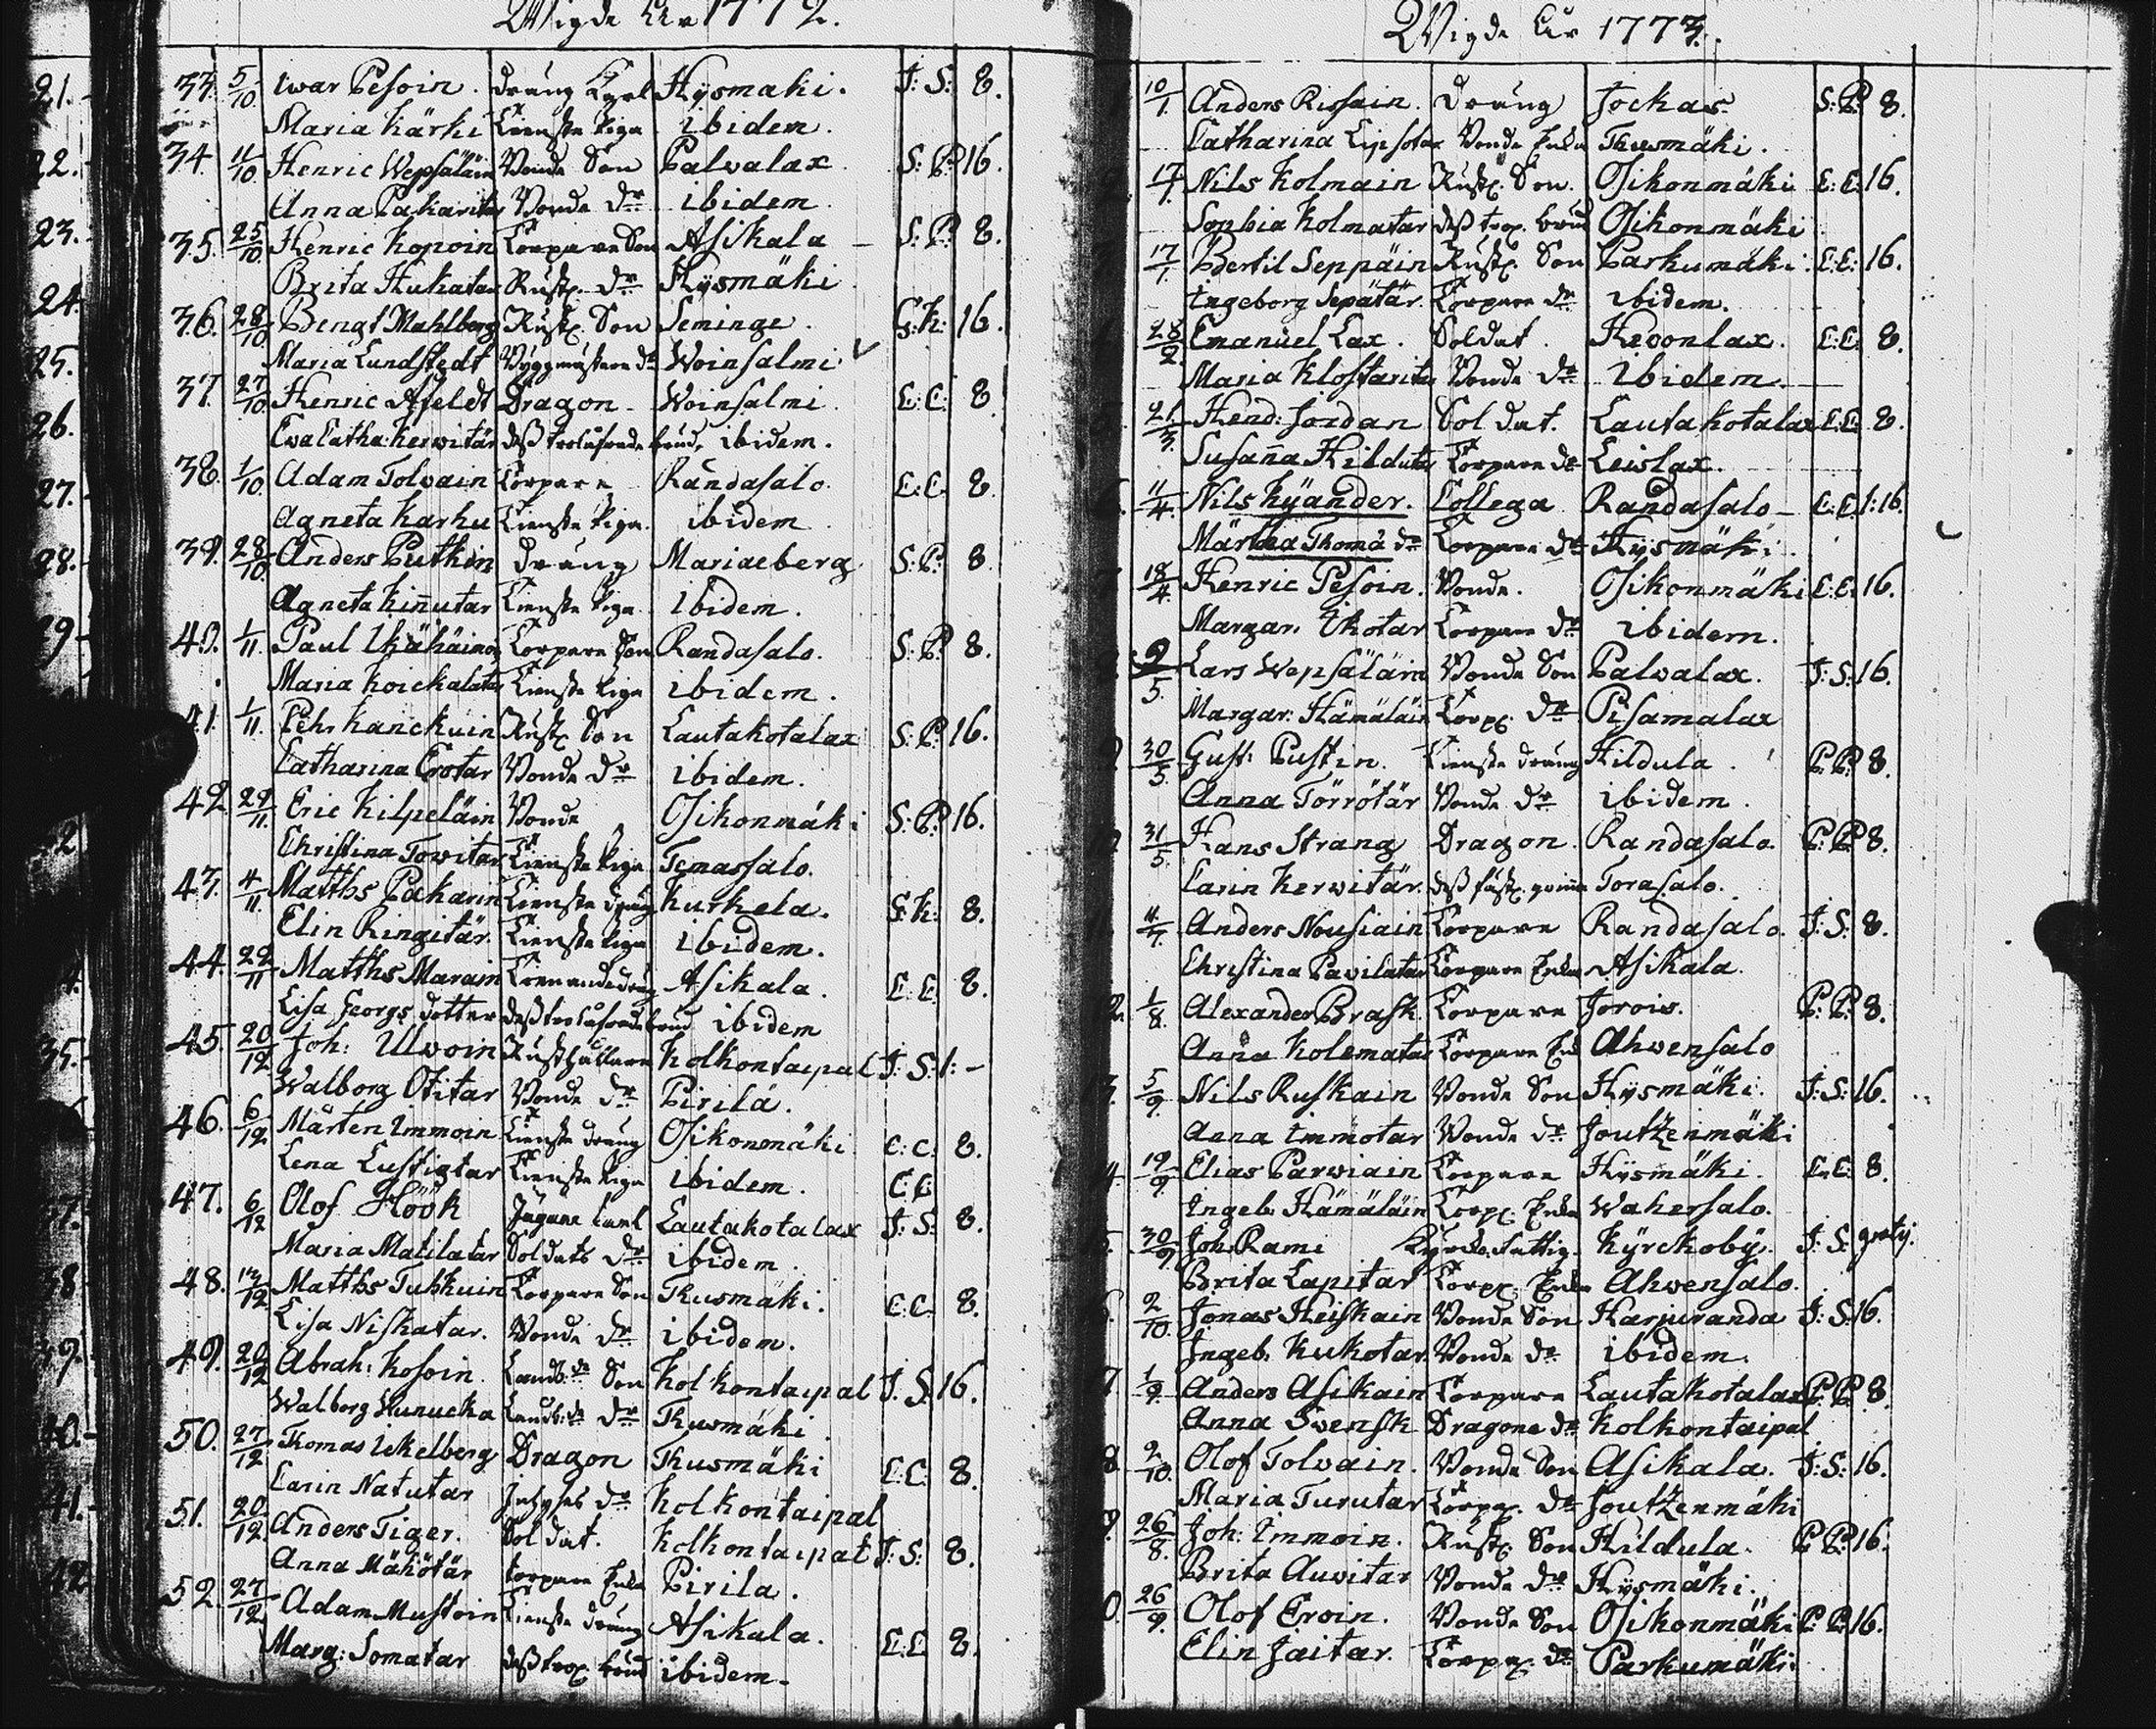 Wigde Åhr 1772.
33. 5/10 Iwar Pesoin. dräng Hysmäki. J: S: 8.
Maria Kärki Tienste Piga ibidem.
34. 11/10 Henric Wepsäläin Bonde Son Palvalax S: P: 16.
Anna Pakaritar Bonde dr ibidem
35. 25/10 Henric Kopoin Torpare Son Asikala S: P: 8.
Brita Kukatar Rust. dr Hysmäki
36. 28/10 Bengt Mahlberg Rust. Son Seminge. G: K: 16.
Maria Lundstedt Byggmästare dr Woinsalmi
37. 27/10 Henric Afeldt Dragon Woinsalmi C: C: 8
Ewa Catha: Kerwitär dess trolofwade brud, ibidem.
38. 1/10 Adam Tolvain Torpare Randasalo C: C: 8
Agneta Karhu Tienste Piga ibidem
39. 28/10 Anders Putkin dräng Mariaeberg S: P: 8
Agneta Kinnutar Tienste Piga ibidem.
40. 1/11 Paul Ikähäinoin Torpare Son Randasalo. S: P: 8.
Maria Koickalatar Tienste Piga ibidem.
41. 1/11 Pehr Kanckuin Rust. Son Lautakotalax S: P: 16.
Catharina Erotar Bonde dr ibidem.
42. 22/11 Eric Kilpeläin Bonde Osikonmäki S: P: 16.
Christina Towitar Tienste Piga Temassalo.
43. 4/11 Matths Pakarin Tienste dräng Kurkela. S: K: 8.
Elin Ringitär. Tienste Piga ibidem.
44. 22/11 Matths Marain dräng Asikala. C: C: 8.
Lisa Georgs dotter dess trolofwade brud ibidem
45. 20/12 Joh: Ulvoin Rusthållare Kolkontaipal J: S: 1: -
Walborg Otitar Bonde dr Pirilä.
46. 6/12 Mårten Immoin Tienste dräng Osikonmäki C: C: 8.
Lena Lustigtar Tienste Piga ibidem. C: C:
47. 6/12 Olof Höök Jägare Karl Lautakotalax J: S: 8.
Maria Matilatar Soldats dr ibidem.
48. 13/12 Matths Tuhkuin Torpare Son Thusmäki. C: C. 8.
Lisa Niskatar. Bonde dr ibidem.
49. 20/12 Abrah: Kosoin Landb:de Son Kolkontaipal J: S: 16.
Walborg Hunucka Landb:de dr Thusmäki.
50. 27/12 Thomas Uckelberg Dragon Thusmäki C: C: 8.
Carin Natutar dr Kolkontaipal
51. 20/12 Anders Tiger. Soldat. Kolkontaipal J: S: 8.
Anna Mähötär torpare Enka Pirila.
52. 27/12 Adam Mustoin Tienste dräng Asikala. C: C: 8.
Marg: Somatar dess trol. brud ibidem.
Wigde Åhr 1773.
10/1 Anders Rissain. Dräng Jockas S: P: 8.
Catharina Lipsotar Bonde Enka Thusmäki.
17/1. Nils Kolmain Rust. Son. Osikonmäki C: C: 16.
Sophia Kolmatar dess trol. brud Osikonmäki
17/1. Bertil Seppäin Rust. Son Parkumäki. C: C: 16.
Ingeborg Sepätär. Torpare dr ibidem.
28/2 Emanuel Lax. Soldat. Hevonlax. C: C: 8.
Maria Klostaritar Bonde dr ibidem.
21/3. Hend: Jordan Soldat. Lautakotalax C: C: 8.
Susanna Hildutar Torpare dr Leislax.
11/4. Nils Kyander. Collega Randasalo C: C: 1:16.
Märtha Thomä dr Torpare dr Hysmäki.
18/4. Henric Pesoin. Bonde. Osikonmäki C: C: 16.
Margar. Ikotar Torpare dr ibidem.
9/5. Lars Wepsäläin Bonde Son Palvalax. J: S: 16.
Margar: Hämäläin Torp: dr Pisamalax
30/5. Gust: Pustin. Tienste dräng Hildula. P: P: 8.
Anna Törrötär Bonde dr ibidem.
31/5. Hans Strang Dragon. Randasalo. P: P: 8.
Carin Kerwitär. dess fäst. qvinna Torasalo.
11/7. Anders Nousiain Torpare Randasalo. J: S: 8.
Christina Pavilatar Torpare Enka Asikala.
1/8. Alexander Brask Torpare Jorois. P: P: 8.
Anna Kolematar Torpare Enk Ahvensalo
5/9. Nils Ruskain Bonde Son Hysmäki. J: S: 16.
Anna Immotar Bonde dr Joutzenmäki
19/9 Elias Parviain Torpare Hysmäki. C: C: 8.
Ingeb: Hämäläin Torp: Enka Wahersalo.
30/9 Joh: Rami Kyrko. Fattig. Kyrckoby. J: S: gratis.
Brita Lapitar Torp: Enka Ahvensalo.
2/10. Jonas Heiskain Bonde Son Harjuranda J: S: 16.
Ingeb. Kukotar. Bonde dr ibidem.
1/9. Anders Asikain Torpare Lautakotalax P: P: 8
Anna Svensk Dragone dr Kolkontaipal
2/10. Olof Tolvain. Bonde Son Asikala. J: S: 16.
Maria Turutar Torp. dr Joutzenmäki
26/8. Joh: Immoin. Rust. Son Hildula. P: P: 16.
Brita Auvitar Bonde dr Hysmäki.
26/9. Olof Eroin. Bonde Son Osikonmäki P: P: 16.
Elin Jaitar. Torp. dr Parkumäki.